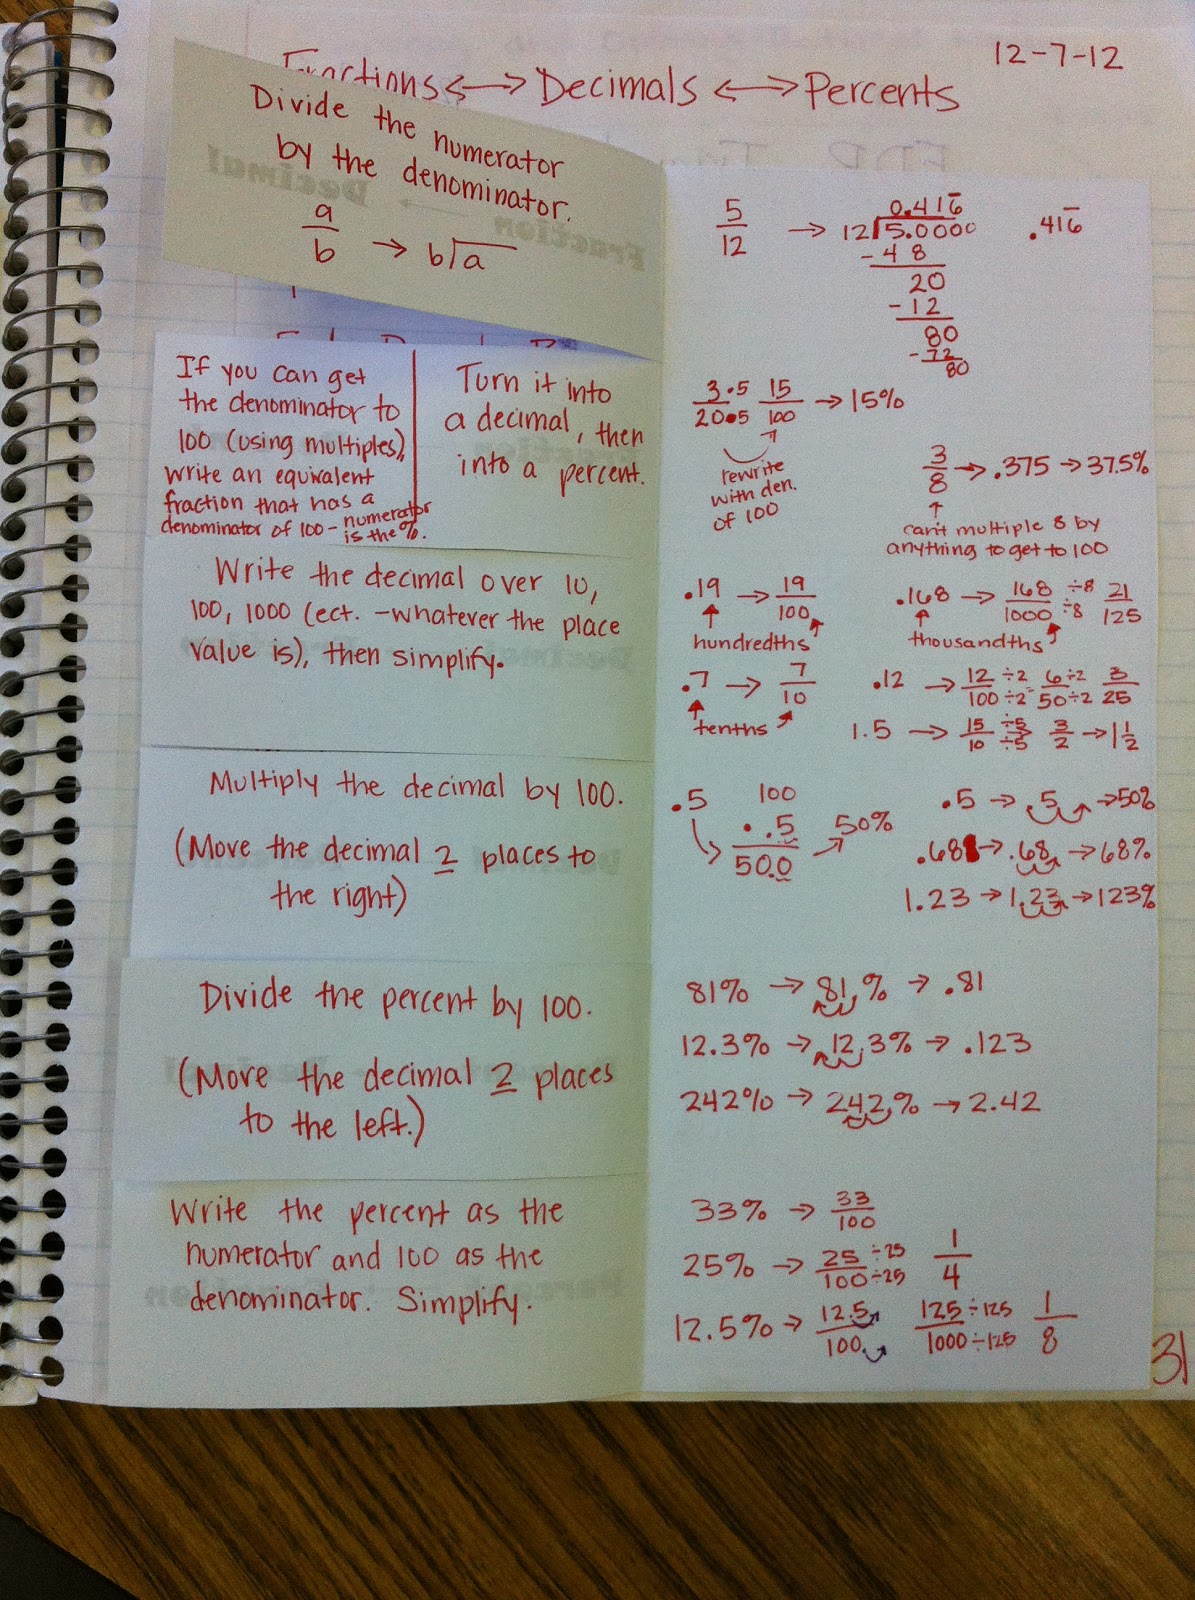 12-7-12
Fractions <-> Decimals <-> Percents
Divide the numerator
by the denominator.
a/b → b⟌a
5/12 → 12⟌5.0000
0.416̅
.416̅
-48
20
-12
80
-72
80
If you can get
the denominator to
100 (using multiples),
write an equivalent
fraction that has a
denominator of 100 - numerator
is the %.
Turn it into
a decimal, then
into a percent.
3·5/20·5 15/100 → 15%
rewrite
with den.
of 100
3/8 → .375 → 37.5%
can't multiple 8 by
anything to get to 100
Write the decimal over 10,
100, 1000 (ect. -whatever the place
value is), then simplify.
.19 → 19/100
hundredths
.168 → 168/1000 ÷8/÷8 21/125
thousandths
.7 → 7/10
tenths
.12 → 12/100 ÷2/÷2 = 6/50 ÷2/÷2 3/25
1.5 → 15/10 ÷5/÷5 3/2 → 1 1/2
Multiply the decimal by 100.
(Move the decimal 2 places to
the right)
.5
100
· .5
50.0
50%
.5 → .5 → 50%
.68 → .68 → 68%
1.23 → 1.23 → 123%
Divide the percent by 100.
(Move the decimal 2 places
to the left.)
81% → 81.% → .81
12.3% → 12.3% → .123
242% → 242.% → 2.42
Write the percent as the
numerator and 100 as the
denominator. Simplify.
33% → 33/100
25% → 25/100 ÷25/÷25 1/4
12.5% → 12.5/100. 125/1000 ÷125/÷125 1/8
31